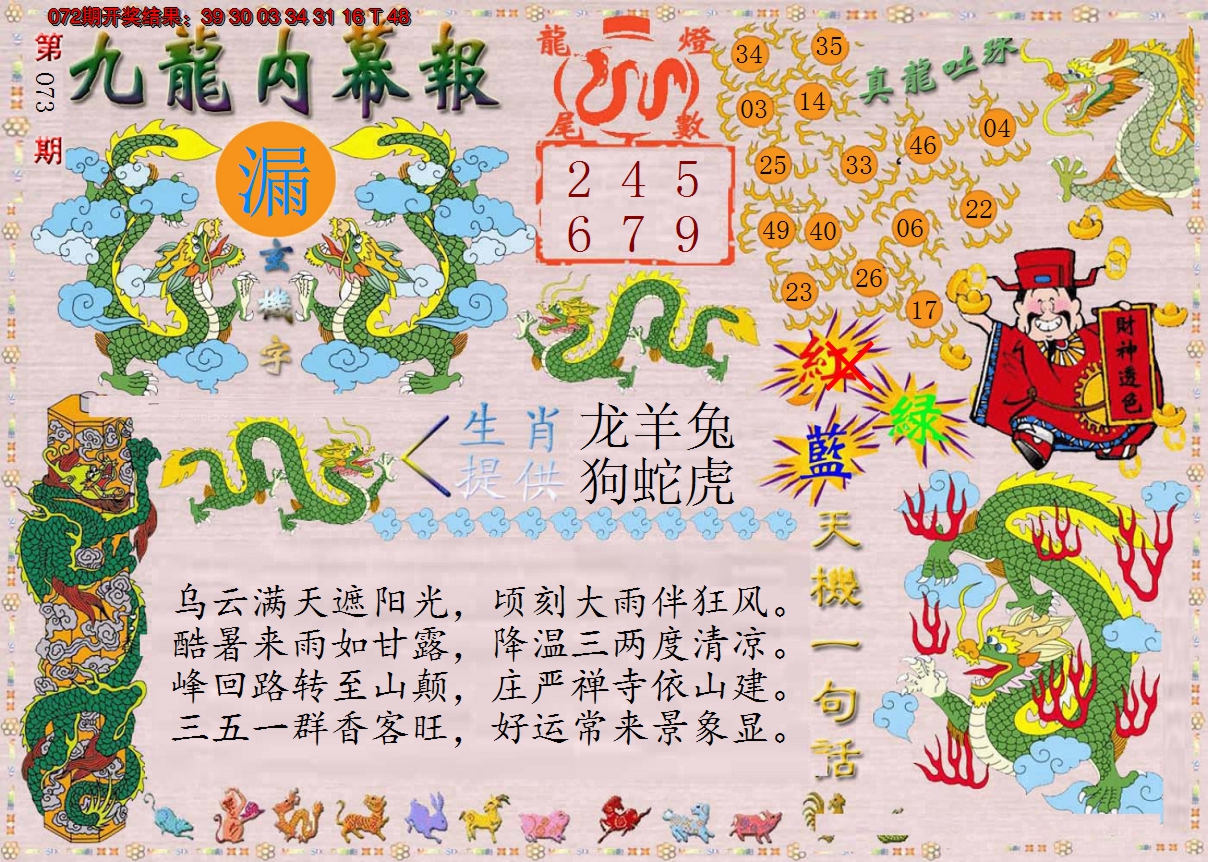 072期开奖结果：39 30 03 34 31 16 T 48
第073期
九龍内幕報
漏
玄機字
龍燈
尾數
2 4 5
6 7 9
真龍吐珠
34 35
03 14
25 33 46 04
49 40 06 22
23 26 17
財神透色
紅
綠
藍
生肖
提供
龙羊兔
狗蛇虎
天機一句话
乌云满天遮阳光，顷刻大雨伴狂风。
酷暑来雨如甘露，降温三两度清凉。
峰回路转至山颠，庄严禅寺依山建。
三五一群香客旺，好运常来景象显。